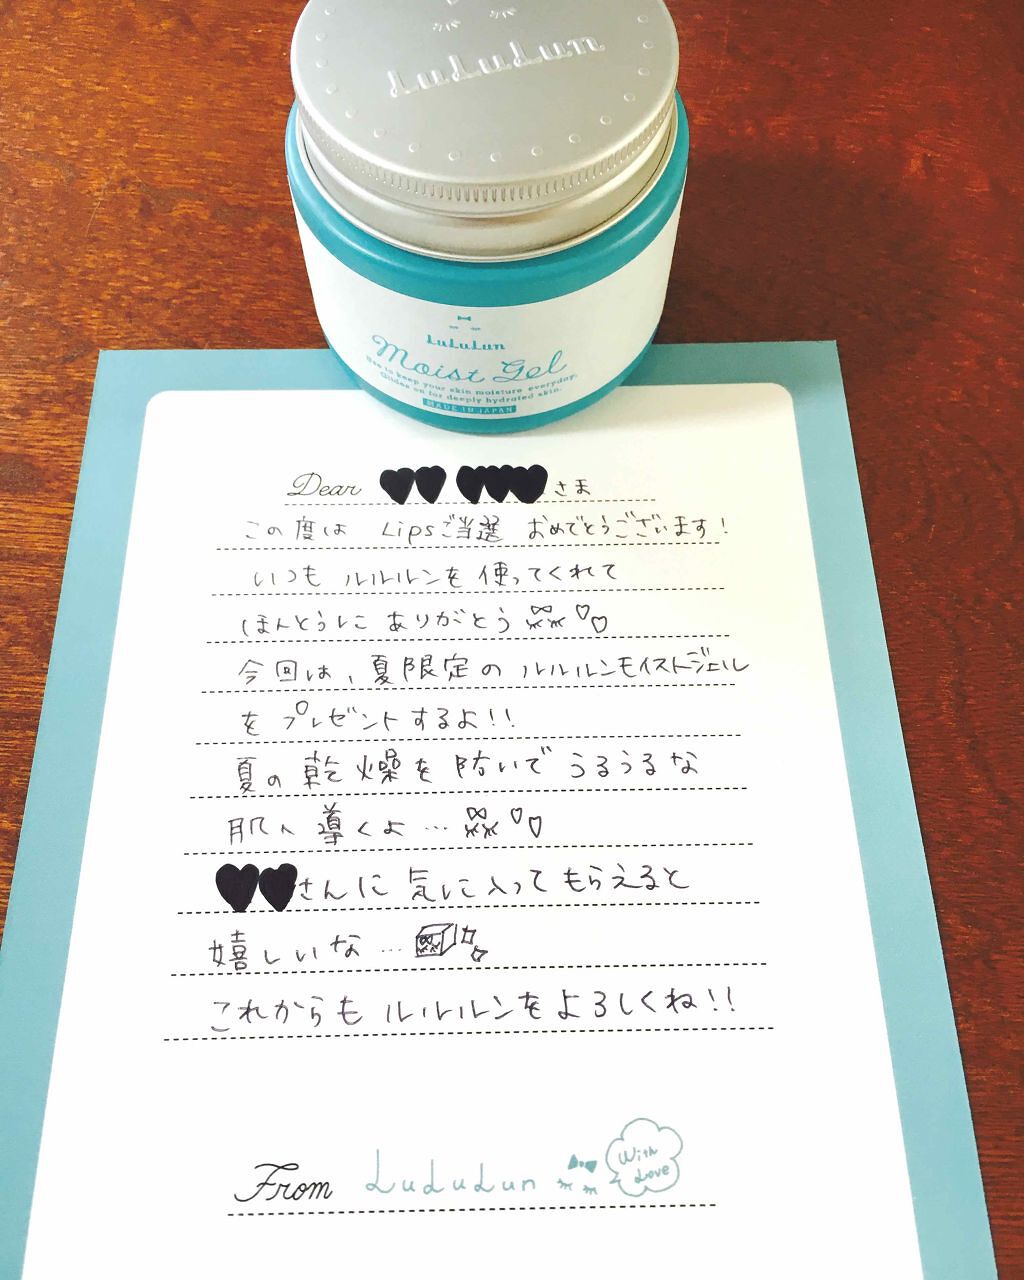 LuLuLun
LuLuLun
Moist Gel
Use to keep your skin moisture everyday.
Glides on for deeply hydrated skin.
MADE IN JAPAN
Dear さま
この度は Lipsご当選 おめでとうございます!
いつも ルルルンを使ってくれて
ほんとうに ありがとう
今回は、夏限定の ルルルンモイストジェル
を プレゼントするよ!!
夏の乾燥を防いで うるうるな
肌へ導くよ…
さんに気に入ってもらえると
嬉しいな…
これからもルルルンをよろしくね!!
From LuLuLun With
Love